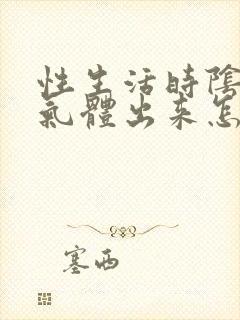 性生活時陰
氣體出来怎
塞西